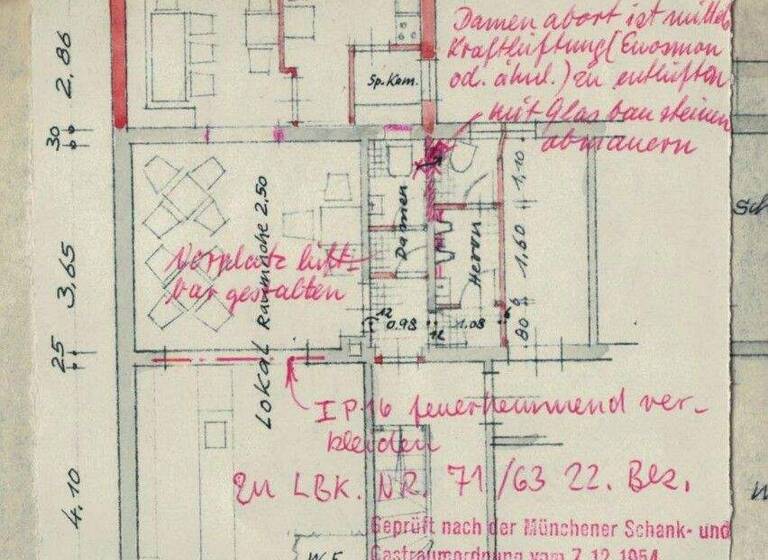 Damenabort ist mittels
Kraftlüftung (Enosmon
od. ähnl.) zu entlüften
mit Glasbausteinen
abmauern
2,86
30
3,65
25
4.10
Sp.Kam.
Damen
Herrn
1,10
1,60
80
6
6
12
0.98
12
1.08
LOKAL Raumhöhe 2.50
Vorplatz lüft-
bar gestalten
I P 16 feuerhemmend ver-
kleiden
Zu LBK. NR. 71/63 22. Bez.
Geprüft nach der Münchener Schank- und
Gastraumordnung vom 7.12.1954
W.F.